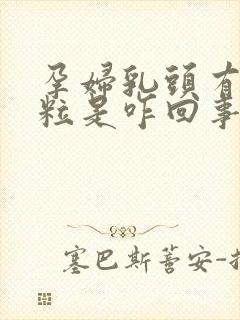 孕婦乳頭有
粒是咋回事
塞巴斯蒈安-